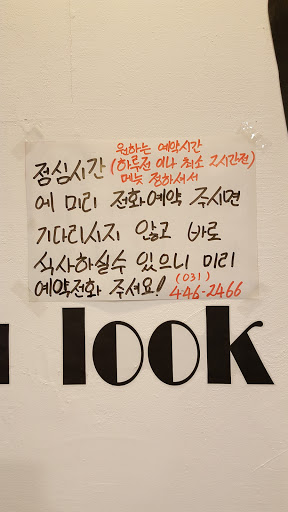 원하는 예약시간
점심시간 (하루전 이나 최소 2시간전)
메뉴 정하셔서
에 미리 전화예약 주시면
기다리시지 않고 바로
식사하실수 있으니 미리
예약전화 주셔요! (031)
446-2466
look